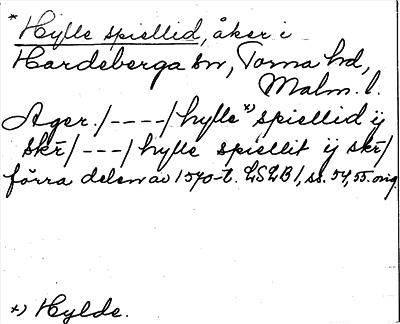 * Hylle spiellid, åker i
Hardeberga sn, Torna hd,
Malm. l.
Ager. /----/ hylle *) spiellid ij
skr̄ /---/ hylle spiellit ij skr̄ /
förra delen av 1570-t. LSLB 1, ss. 54, 55. orig.
*) Hylde.